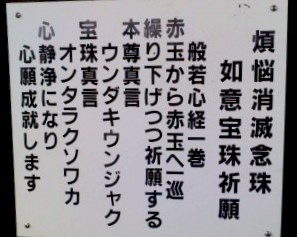 煩悩消滅念珠
如意宝珠祈願
般若心経一巻
赤玉から赤玉へ一巡
繰り下げつつ祈願する
本尊真言
ウンダキウンジャク
宝珠真言
オンタラクソワカ
心静浄になり
心願成就します